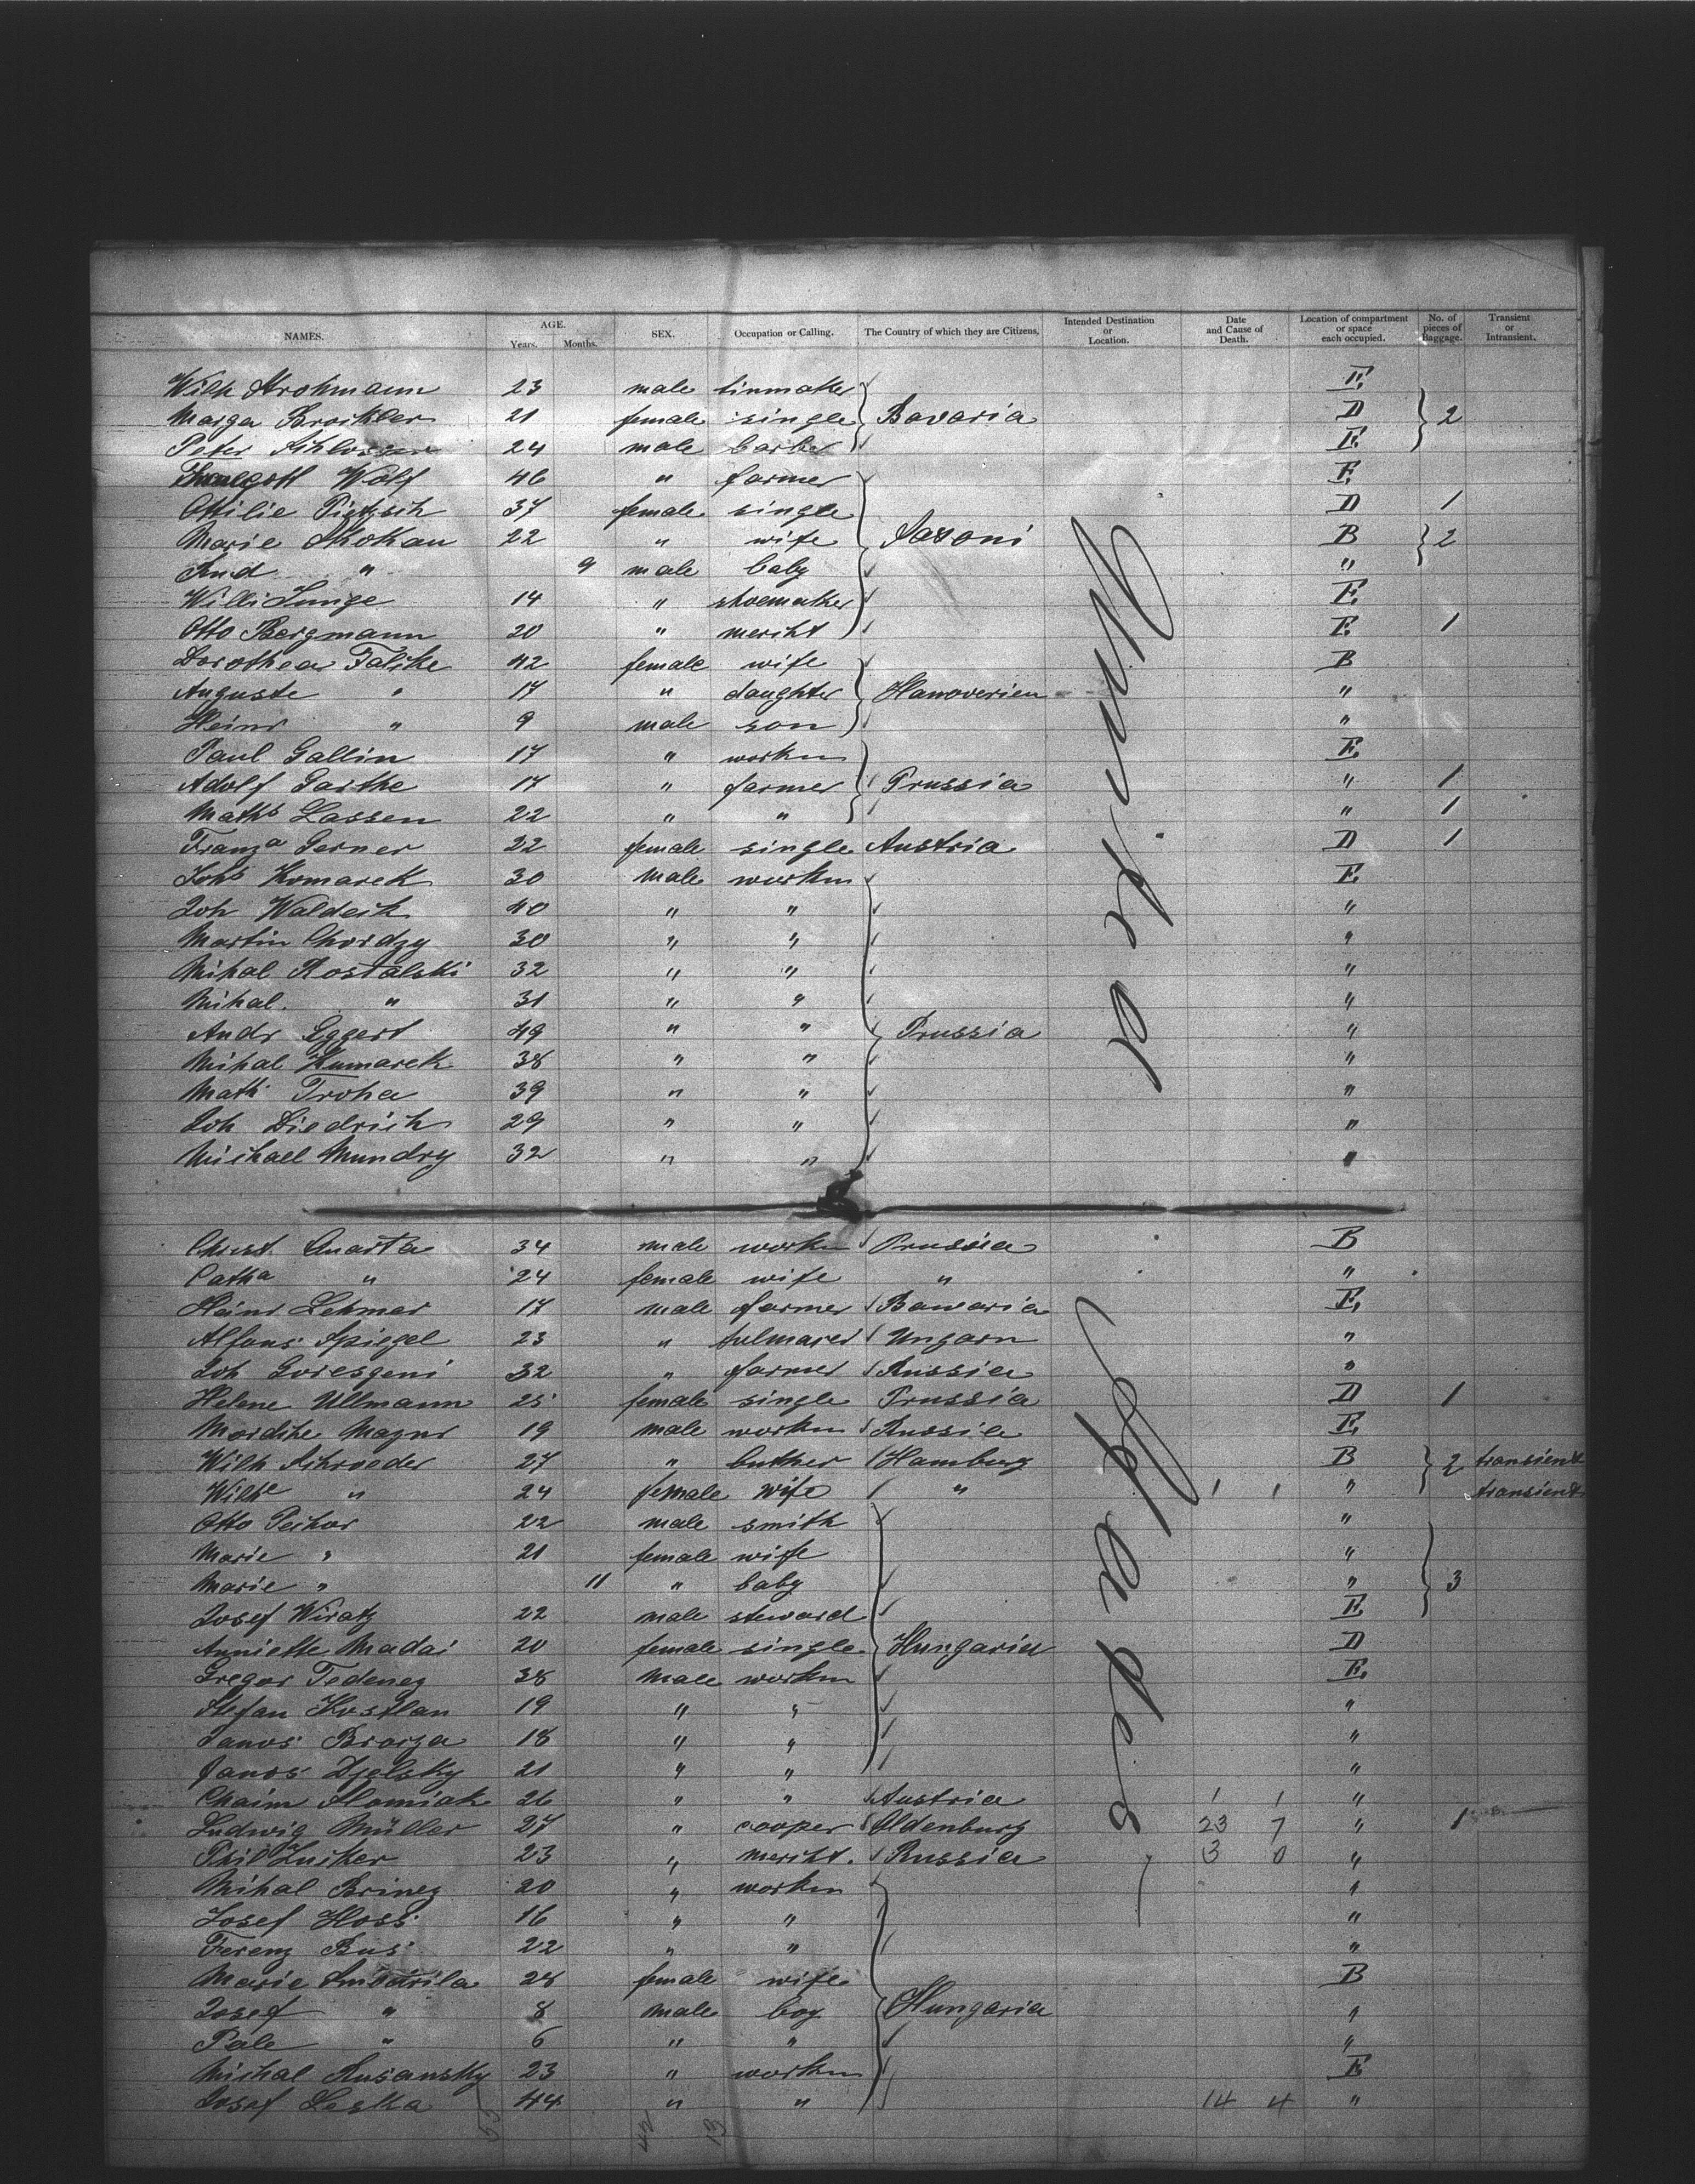 NAMES. AGE. Years. Months. SEX. Occupation or Calling. The Country of which they are Citizens. Intended Destination or Location. Date and Cause of Death. Location of compartment or space each occupied. No. of pieces of Baggage. Transient or Intransient.
Wilh Strohmann 23 male tinmaker E
Marga 21 female single Bavaria D 2
Peter 24 male barber E
Wolf 46 " farmer E
Ottilie Pietzsch 37 female single D 1
Marie Skokan 22 " wife Saxoni B 2
" 9 male baby "
Willi Junge 14 " shoemaker E
Otto Bergmann 20 " mericht E 1
Dorothea Falcke 42 female wife B
Auguste " 17 " daughter Hanoverien "
Heinr " 9 male son "
Paul Gallin 17 " workm E
Adolf Garthe 17 " farmer Prussia " 1
Maths Lassen 22 " " " 1
Franza Gerner 22 female single Austria D 1
Johs Komarek 30 male workm E
Joh Waldeck 40 " " "
Martin Chordzy 30 " " "
Mihal Rostalski 32 " " "
Mihal " 31 " " "
Andr Eggert 49 " " Prussia "
Mihal Kumarek 38 " " "
Math Troha 39 " " "
Joh Diedrich 29 " " "
Michael Mundry 32 " " "
America
Christ Quarta 34 male workm Prussia B
Catha " 24 female wife " "
Heinr Lehmer 17 male farmer Bawaria E
Alfons Spiegel 23 " Ungarn "
Joh 32 " farmer Russia "
Helene Ullmann 25 female single Prussia D 1
Mordche Mazur 19 male workm Russia E
Wilh Schroeder 27 " butcher Hamburg B 2 transient
Wilhe " 24 female wife " 1 1 " transient
Otto Pechar 22 male smith "
Marie " 21 female wife "
Marie " 11 " baby " 3
Josef Wiratz 22 male steward E
Anniette Madai 20 female single Hungaria D
Gregor Fedenez 38 male workm E
Stefan Kostlan 19 " " "
Janos Brorza 18 " " "
Janos Djelsky 21 " " "
Chaim Slomiak 26 " " Austria 1 1 "
Ludwig Müller 27 " cooper Oldenburg 23 7 " 1
Phil Zucker 23 " mericht. Russia 3 0 "
Mihal Brinez 20 " workm "
Josef Hoss 16 " " "
Ferenz Bus 22 " " "
Marie 28 female wife B
Josef " 8 male boy Hungaria "
Pale " 6 " " "
Michal Rusansky 23 " workm E
Josef Leska 44 " " 14 4 "
55 42 13